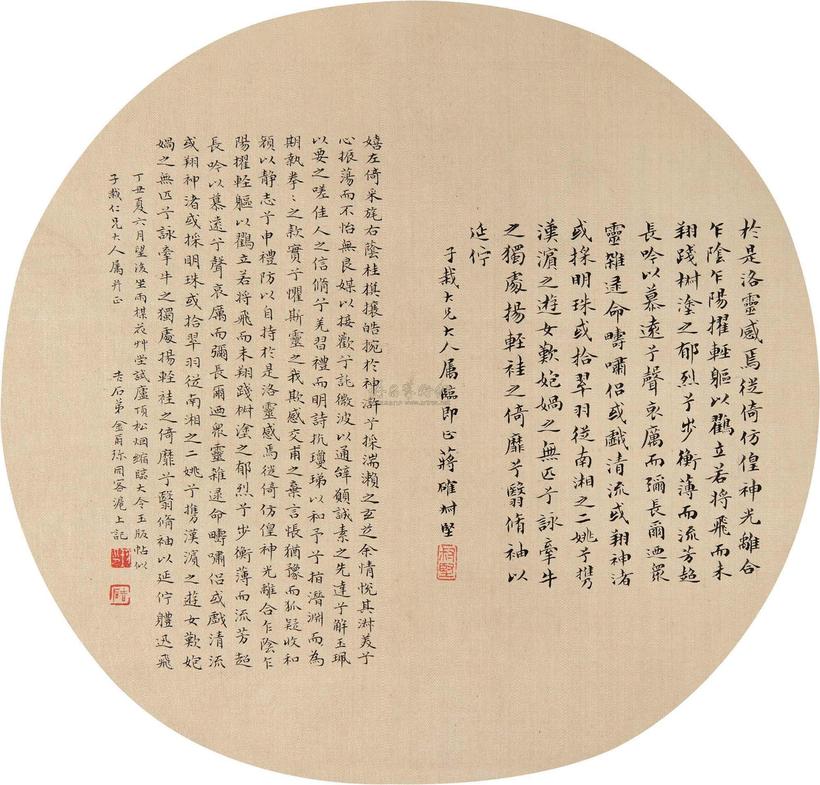 於是洛靈感焉徙倚仿偟神光離合
乍陰乍陽擢輕軀以鸖立若將飛而未
翔踐椒塗之郁烈兮步衡薄而流芳超
長吟以慕遠兮聲哀厲而彌長爾迺眾
靈雜遝命疇嘯侶或戲清流或翔神渚
或採明珠或拾翠羽從南湘之二姚兮攜
漢濱之遊女歎妑媧之無匹兮詠牽牛
之獨處揚輕袿之倚靡兮翳脩袖以
延佇
子載大兄大人属臨即正蔣確叔堅
嬉左倚采旄右蔭桂旗攘皓捥於神滸兮採湍瀨之玄芝余情悅其淋美兮
心振蕩而不怡無良媒以接歡兮託微波以通辭願誠素之先達兮解玉珮
以要之嗟佳人之信脩兮羌習禮而明詩抗瓊珶以和予兮指潛淵而為
期執拳〻之款實兮懼斯靈之我欺感交甫之棄言悵猶豫而狐疑收和
顏以静志兮申禮防以自持於是洛靈感焉徙倚仿偟神光離合乍陰乍
陽擢輕軀以鸖立若將飛而未翔踐椒塗之郁烈兮步衡薄而流芳超
長吟以慕遠兮聲哀厲而彌長爾迺眾靈雜遝命疇嘯侶或戲清流
或翔神渚或採明珠或拾翠羽從南湘之二姚兮攜漢濱之遊女歎妑
媧之無匹兮詠牽牛之獨處揚輕袿之倚靡兮翳脩袖以延佇體迅飛
丁丑夏六月望後坐雨楳花艸堂試廬頂松烟縮臨大令玉版帖似
子載仁兄大人属并正
吉石弟金爾珍同客滬上記